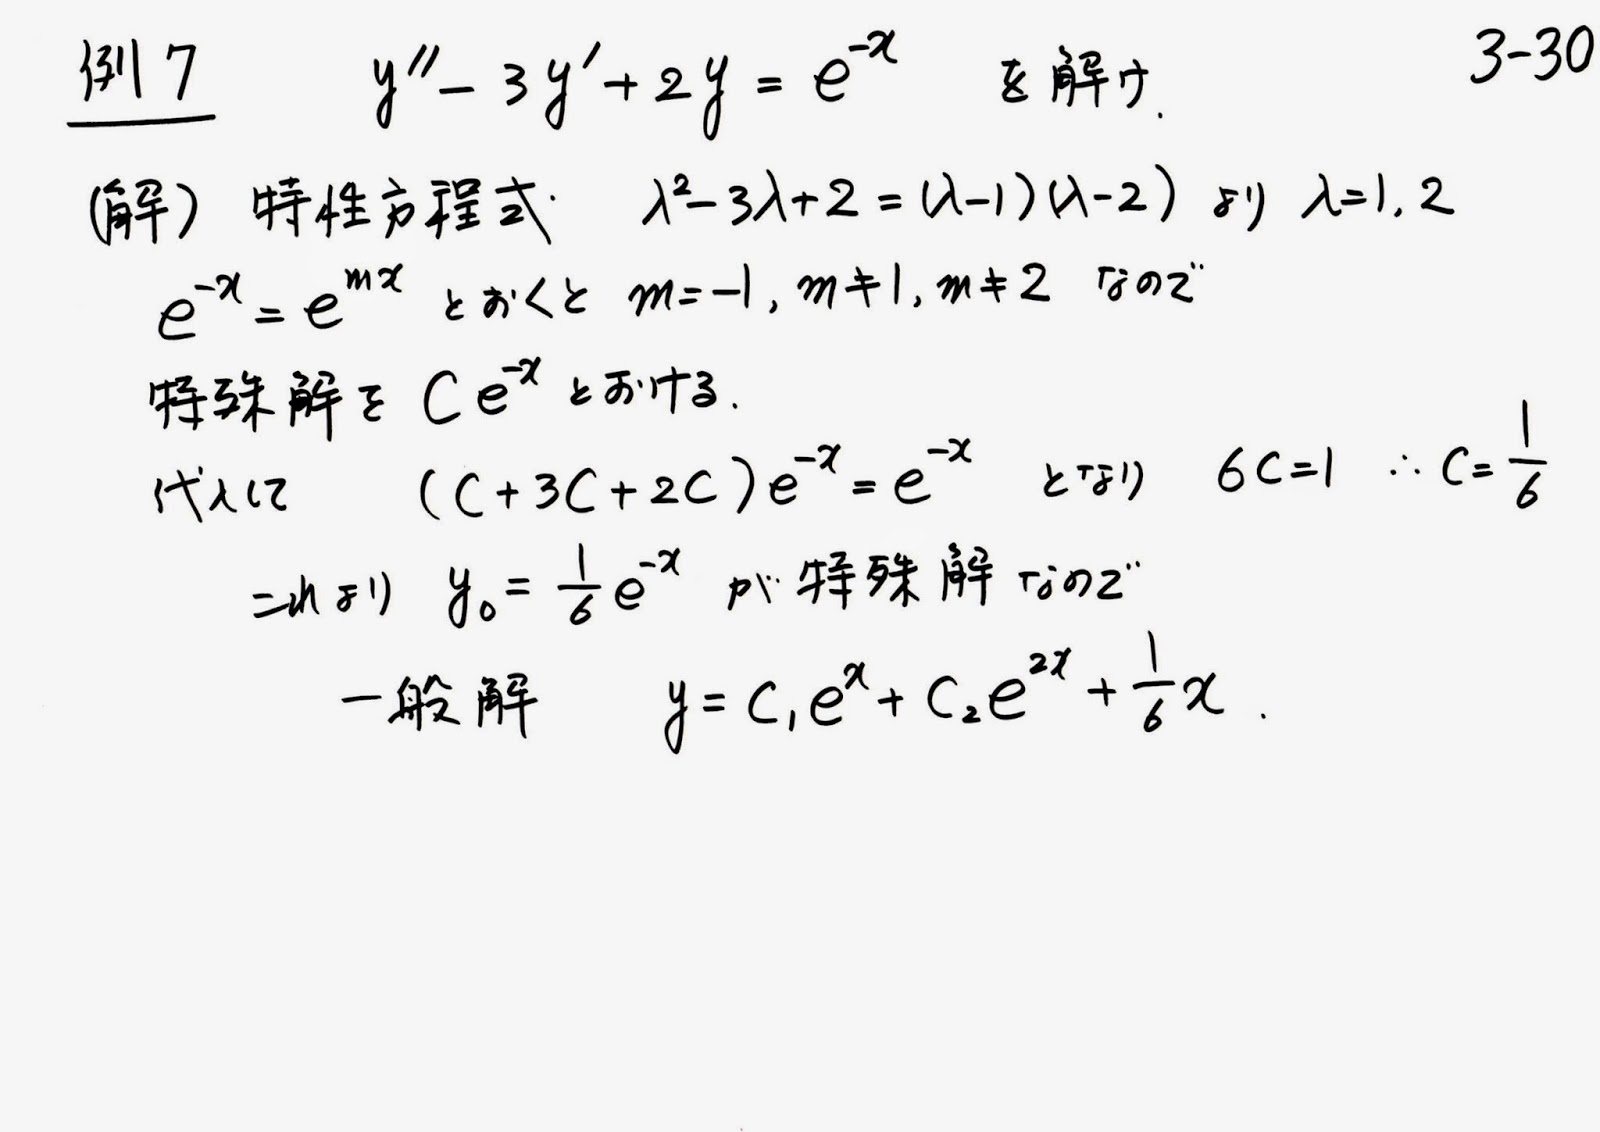 例7 y'' - 3y' + 2y = e^{-x} を解け. 3-30
(解) 特性方程式 λ² - 3λ + 2 = (λ-1)(λ-2) より λ=1, 2
e^{-x} = e^{mx} とおくと m=-1, m≠1, m≠2 なので
特殊解を Ce^{-x} とおける.
代入して (C+3C+2C)e^{-x} = e^{-x} となり 6C=1 ∴ C=1/6
これより y₀ = 1/6 e^{-x} が特殊解なので
一般解 y = C₁e^x + C₂e^{2x} + 1/6 x .